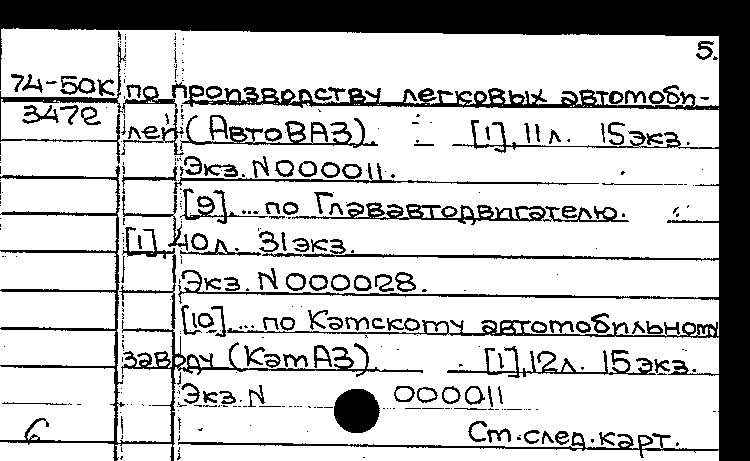 5.
74-50К по производству легковых автомоби-
3472
лей (АвтоВАЗ). [1], 11л. 15экз.
Экз. N000011.
[9].... по Глававтодвигателю.
[1], 40л. 31экз.
Экз. N000028.
[10].... по Камскому автомобильному
заводу (КамАЗ). [1], 12л. 15экз.
Экз. N 000011
6 См. след. карт.